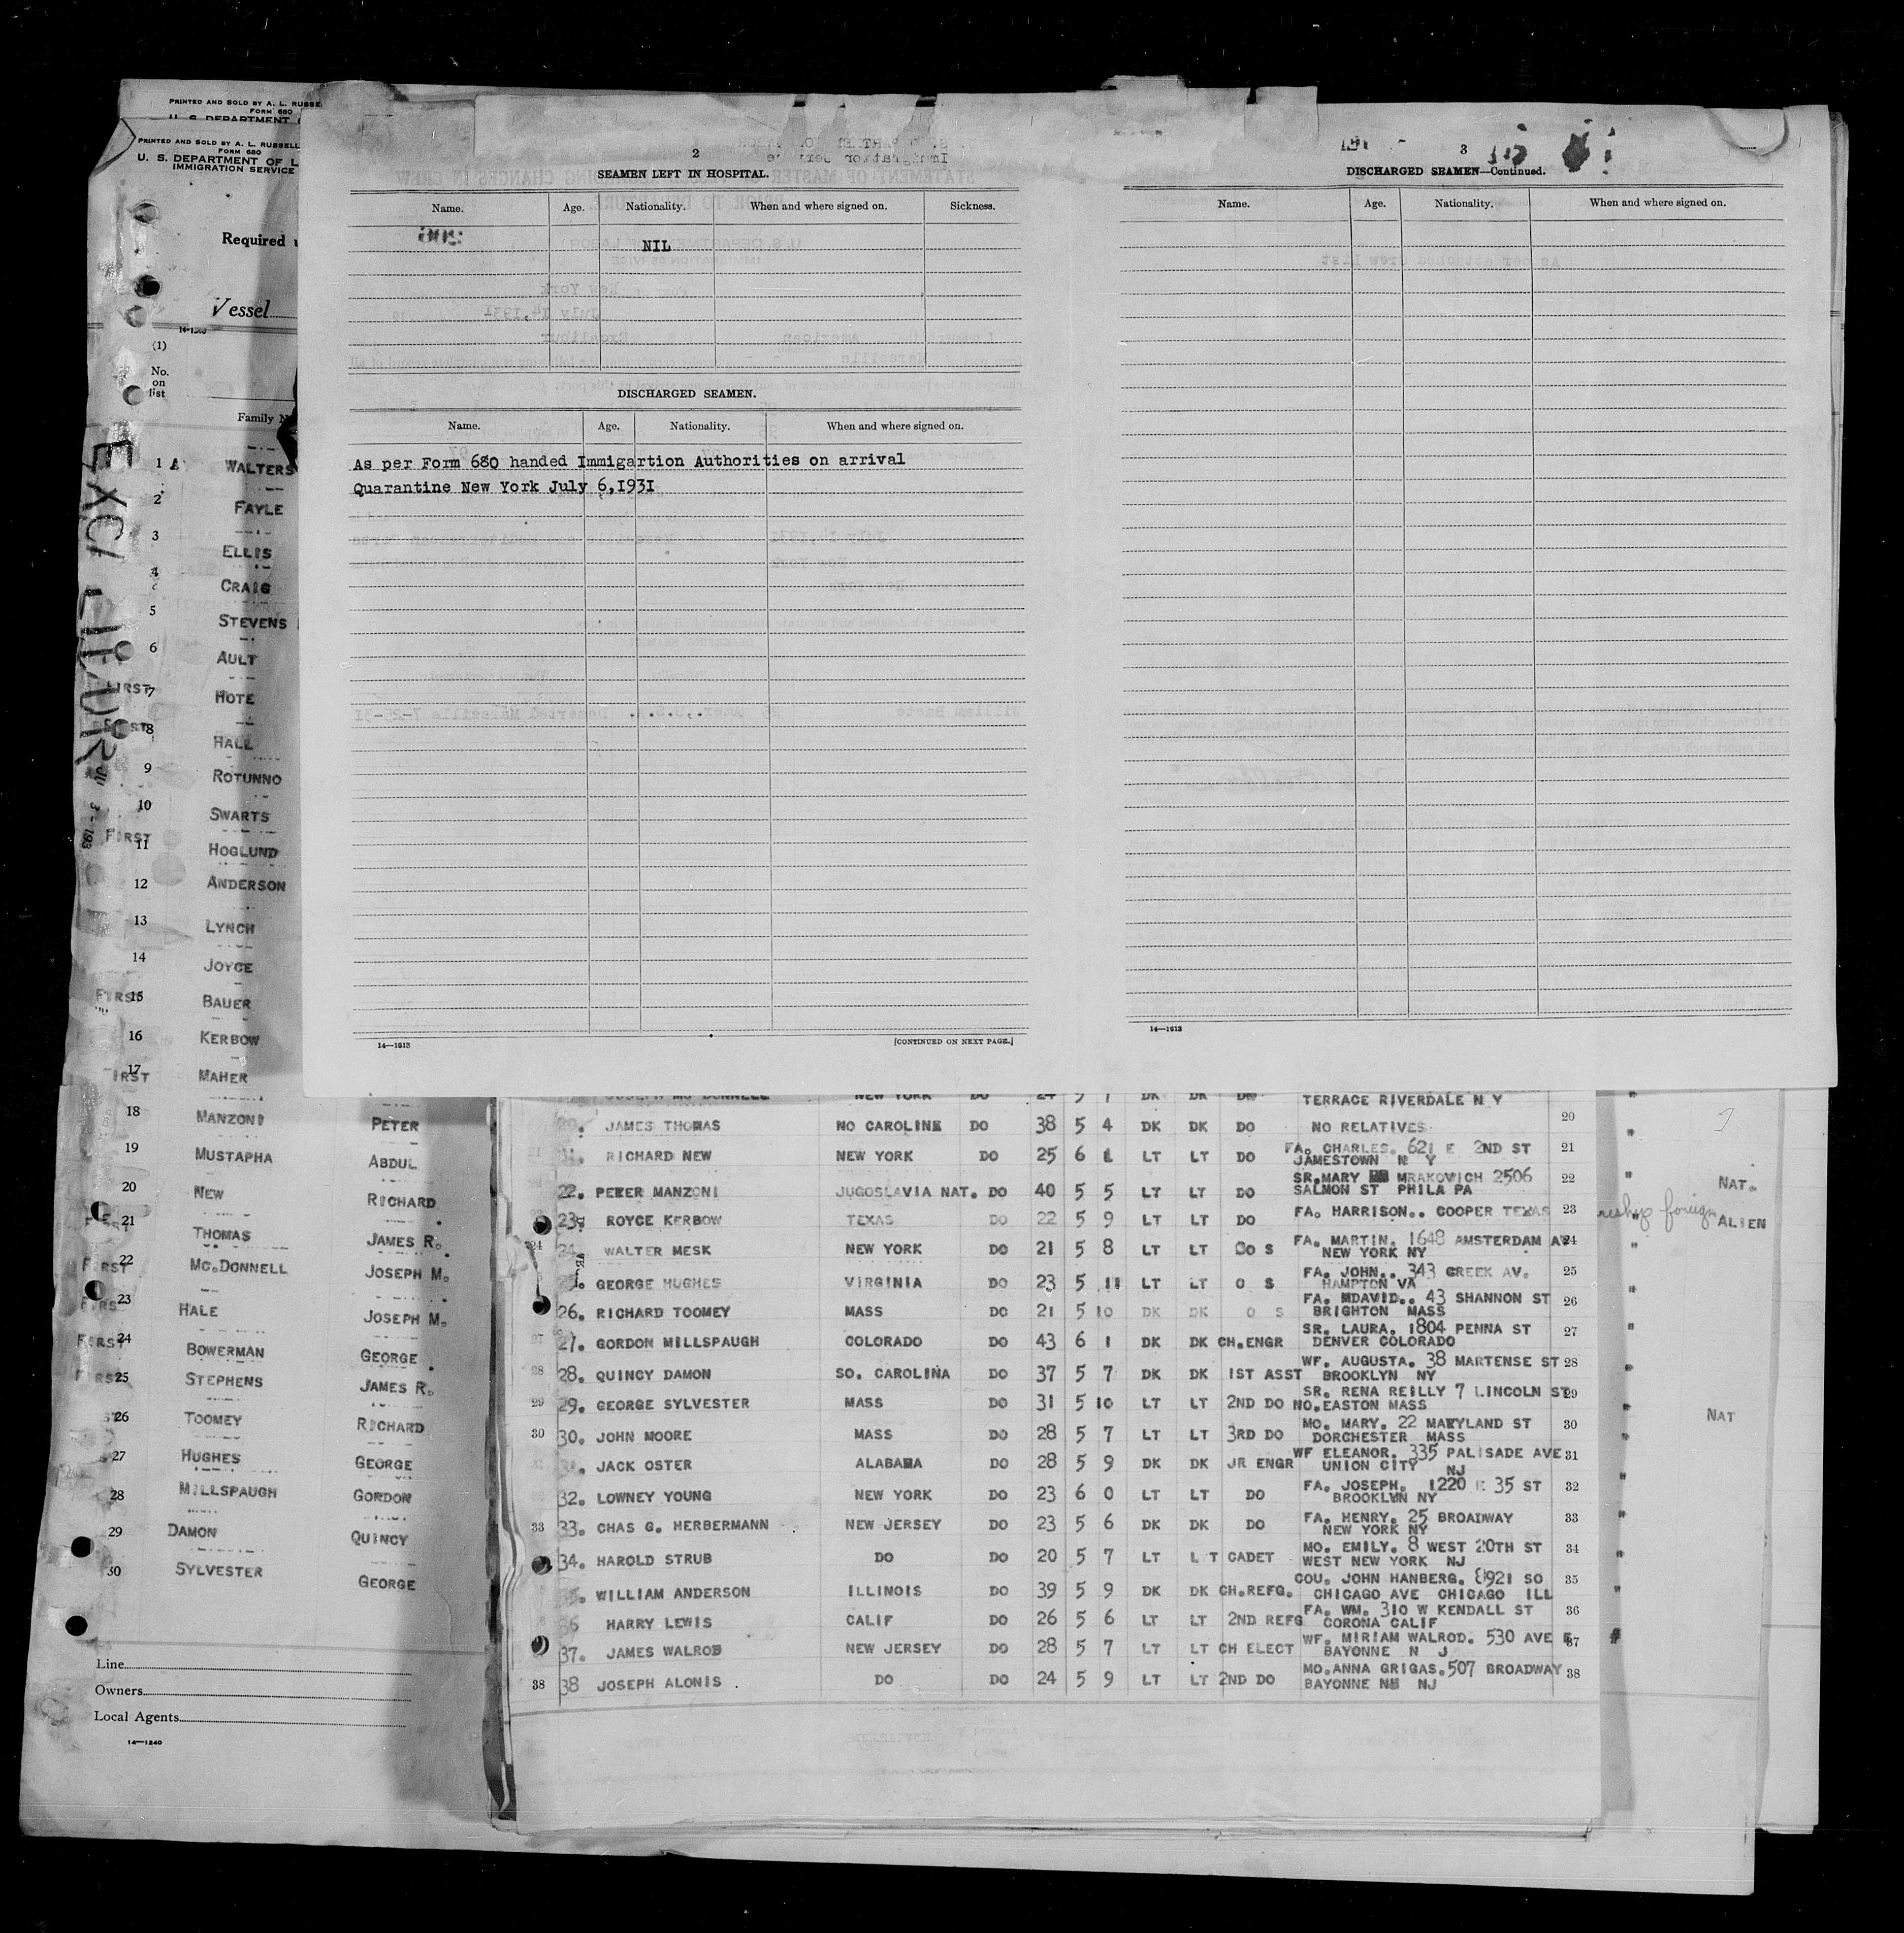 PRINTED AND SOLD BY A. L. RUSSE
FORM 680
U. S. DEPARTMENT
PRINTED AND SOLD BY A. L. RUSSELL
FORM 680
U. S. DEPARTMENT OF L
IMMIGRATION SERVICE
Required
Vessel
14-1240
(1)
No. on list
Family N
EXCALIBUR
1 A WALTERS
2 FAYLE
3 ELLIS
4 CRAIG
5 STEVENS
6 AULT
FIRST 7 HOTE
8 HALL
9 ROTUNNO
10 SWARTS
FIRST 11 HOGLUND
12 ANDERSON
13 LYNCH
14 JOYCE
FIRST 15 BAUER
16 KERBOW
17 MAHER
18 MANZONI PETER
19 MUSTAPHA ABDUL
20 NEW RICHARD
21 THOMAS JAMES R.
FIRST 22 MC.DONNELL JOSEPH M.
23 HALE JOSEPH M.
FIRST 24 BOWERMAN GEORGE
FIRST 25 STEPHENS JAMES R.
26 TOOMEY RICHARD
27 HUGHES GEORGE
28 MILLSPAUGH GORDON
29 DAMON QUINCY
30 SYLVESTER GEORGE
Line
Owners
Local Agents
14—1240
2
SEAMEN LEFT IN HOSPITAL.
Name. Age. Nationality. When and where signed on. Sickness.
NIL
DISCHARGED SEAMEN.
Name. Age. Nationality. When and where signed on.
As per Form 680 handed Immigartion Authorities on arrival
Quarantine New York July 6,1931
14—1613
[CONTINUED ON NEXT PAGE.]
3
DISCHARGED SEAMEN—Continued.
Name. Age. Nationality. When and where signed on.
14—1613
NEW YORK DO 24 5 7 DK DK DO TERRACE RIVERDALE N Y
20. JAMES THOMAS NO CAROLINE DO 38 5 4 DK DK DO NO RELATIVES 20
RICHARD NEW NEW YORK DO 25 6 1 LT LT DO FA. CHARLES. 621 E 2ND ST 21
JAMESTOWN N Y
22. PETER MANZONI JUGOSLAVIA NAT. DO 40 5 5 LT LT DO SR.MARY MRAKOVICH 2506 22
SALMON ST PHILA PA NAT.
23. ROYCE KERBOW TEXAS DO 22 5 9 LT LT DO FA. HARRISON.. COOPER TEXAS 23
foreign ALIEN
24 24. WALTER MESK NEW YORK DO 21 5 8 LT LT DO S FA. MARTIN. 1648 AMSTERDAM AV 24
NEW YORK NY
GEORGE HUGHES VIRGINIA DO 23 5 11 LT LT O S FA. JOHN.. 343 CREEK AV. 25
HAMPTON VA
26. RICHARD TOOMEY MASS DO 21 5 10 DK DK O S FA. MDAVID.. 43 SHANNON ST 26
BRIGHTON MASS
27 27. GORDON MILLSPAUGH COLORADO DO 43 6 1 DK DK CH.ENGR SR. LAURA. 1804 PENNA ST 27
DENVER COLORADO
28 28. QUINCY DAMON SO. CAROLINA DO 37 5 7 DK DK 1ST ASST WF. AUGUSTA. 38 MARTENSE ST 28
BROOKLYN NY
29 29. GEORGE SYLVESTER MASS DO 31 5 10 LT LT 2ND DO SR. RENA REILLY 7 LINCOLN ST 29
NO.EASTON MASS NAT
30 30. JOHN MOORE MASS DO 28 5 7 LT LT 3RD DO MO. MARY. 22 MARYLAND ST 30
DORCHESTER MASS
JACK OSTER ALABAMA DO 28 5 9 DK DK JR ENGR WF ELEANOR. 335 PALISADE AVE 31
UNION CITY NJ
32. LOWNEY YOUNG NEW YORK DO 23 6 0 LT LT DO FA. JOSEPH. 1220 E 35 ST 32
BROOKLYN NY
33 33. CHAS G. HERBERMANN NEW JERSEY DO 23 5 6 DK DK DO FA. HENRY. 25 BROADWAY 33
NEW YORK NY
34. HAROLD STRUB DO DO 20 5 7 LT L T CADET MO. EMILY. 8 WEST 20TH ST 34
WEST NEW YORK NJ
WILLIAM ANDERSON ILLINOIS DO 39 5 9 DK DK CH.REFG. COU. JOHN HANBERG. 8921 SO 35
CHICAGO AVE CHICAGO ILL
36 HARRY LEWIS CALIF DO 26 5 6 LT LT 2ND REFG FA. WM. 310 W KENDALL ST 36
CORONA CALIF
37. JAMES WALROD NEW JERSEY DO 28 5 7 LT LT CH ELECT WF. MIRIAM WALROD. 530 AVE E 37
BAYONNE N J
38 38 JOSEPH ALONIS . DO DO 24 5 9 LT LT 2ND DO MO.ANNA GRIGAS.507 BROADWAY 38
BAYONNE NJ